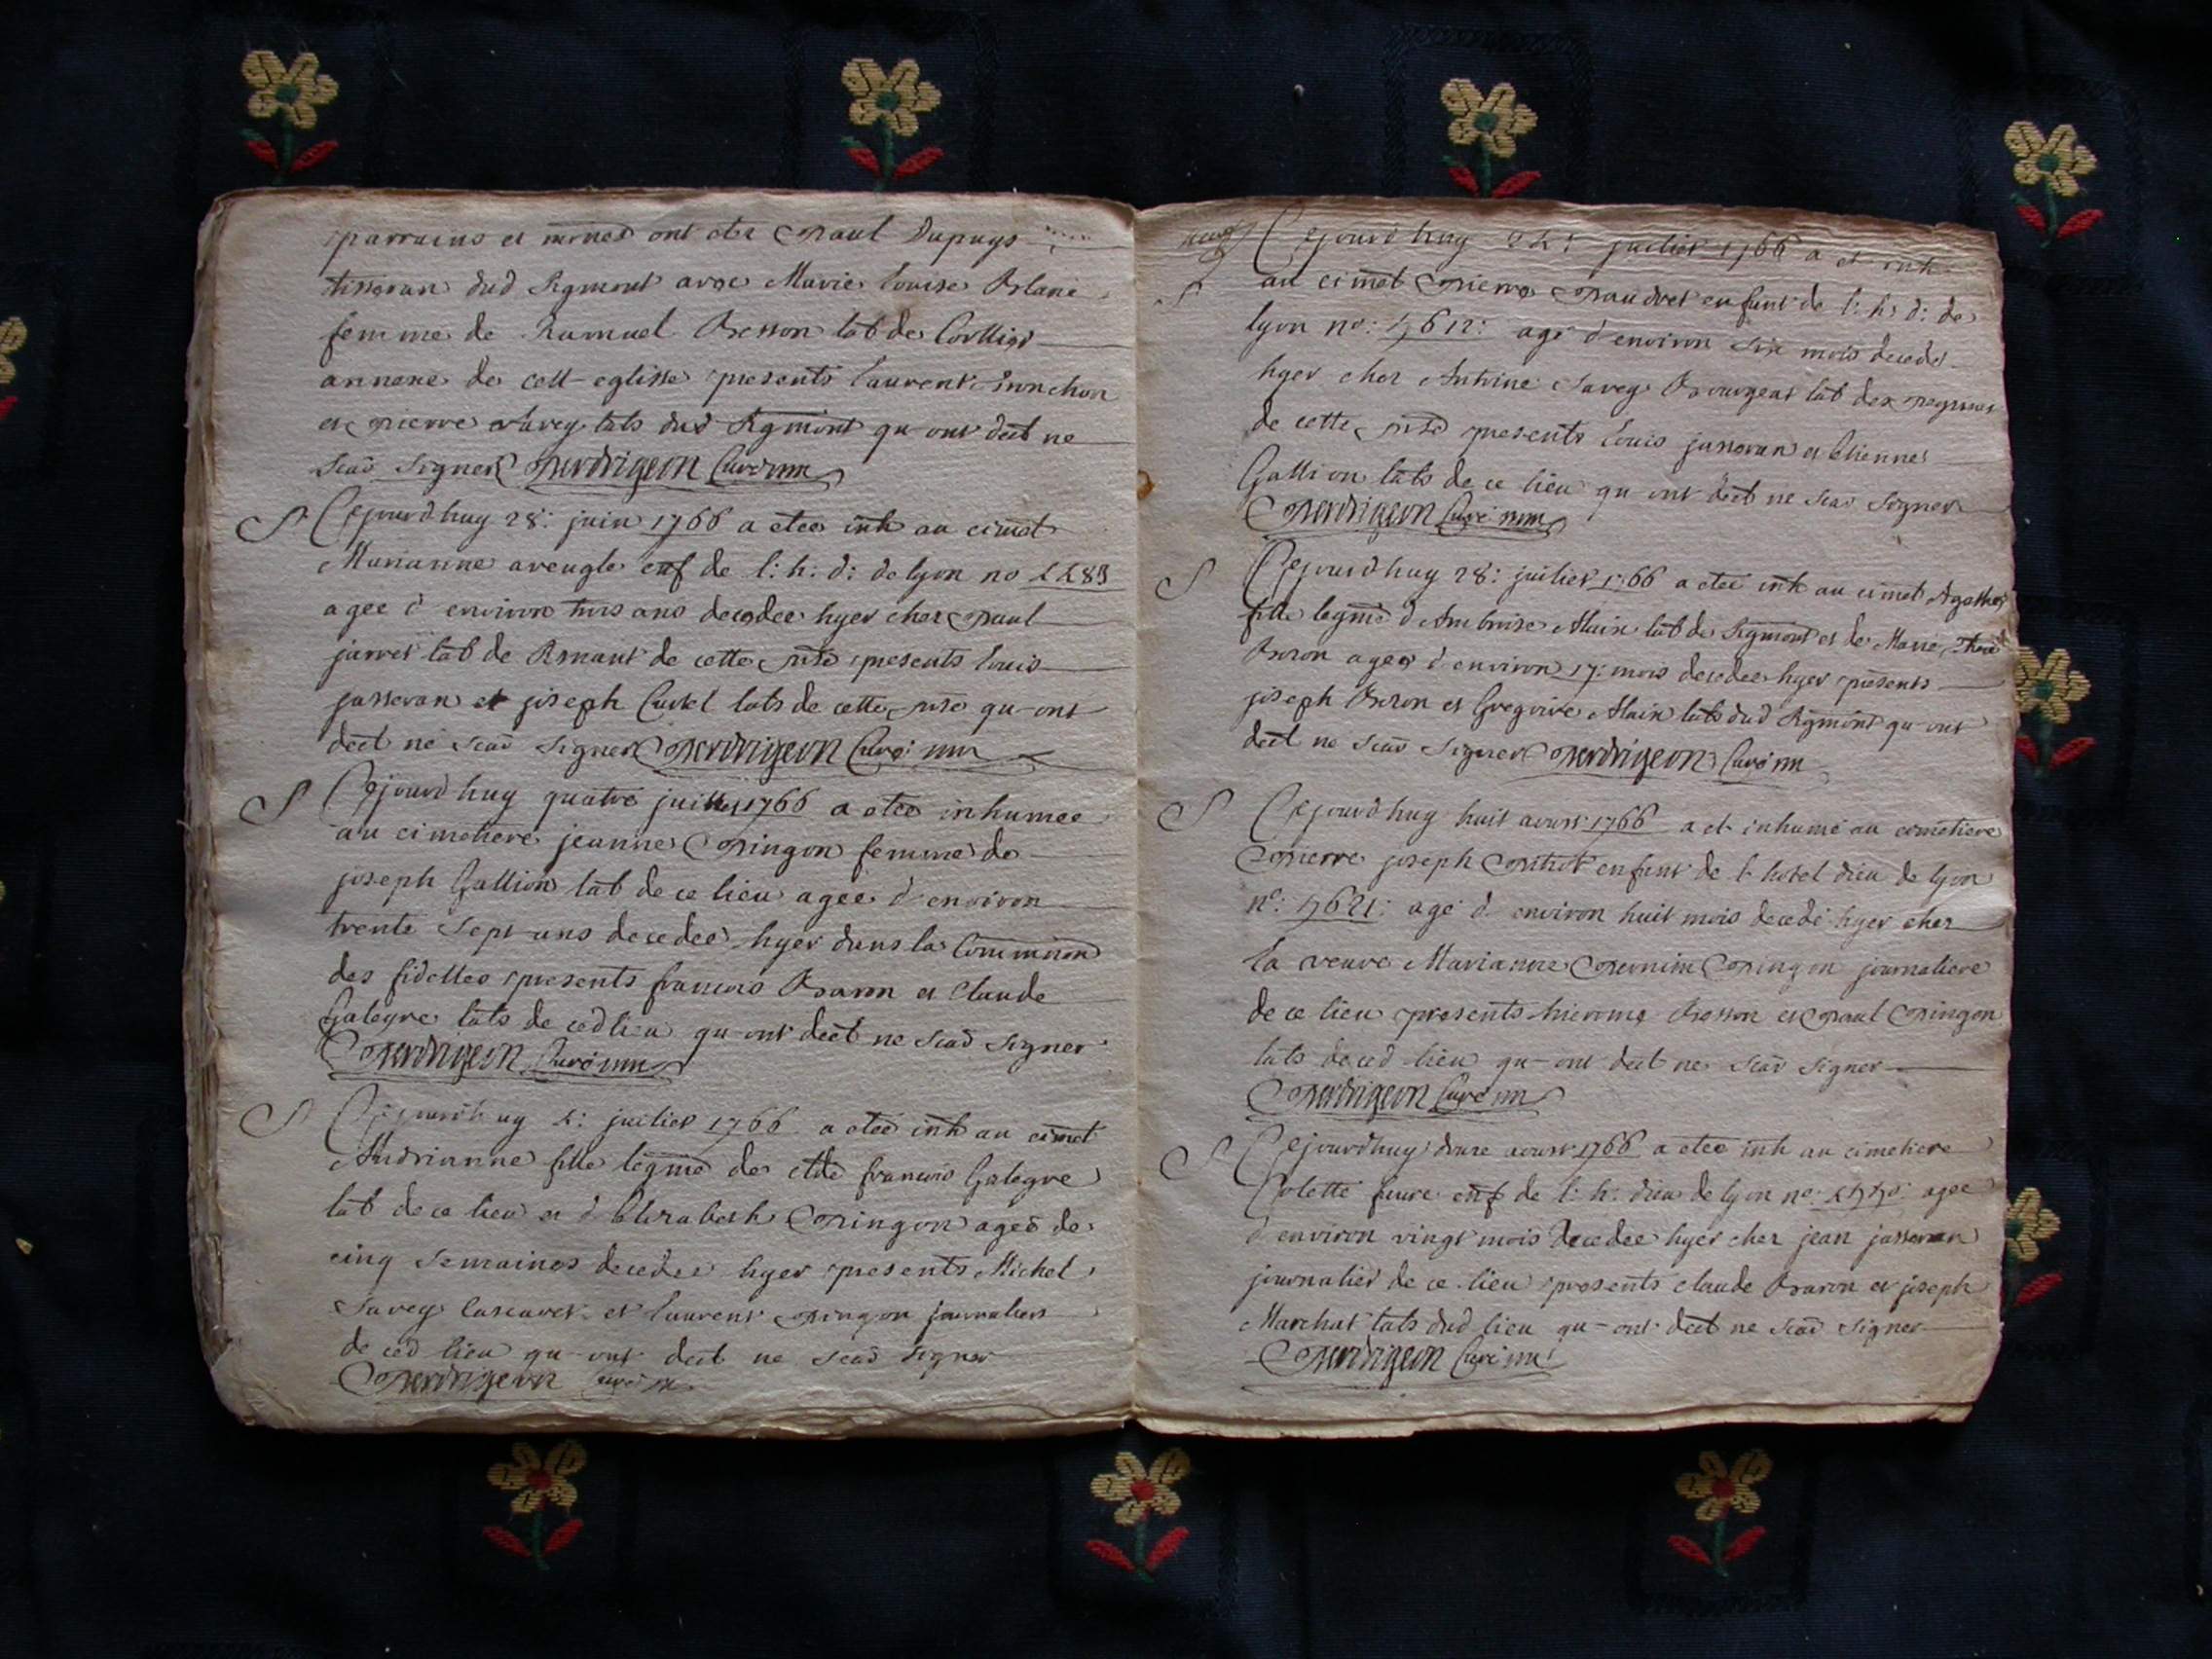 parrains et mrnes ont ete paul Dupuys
tisseran dud Rigmont avec Marie louise Blanc
femme de Samuel Besson lab de
annexe de cett eglisse presents laurent
et pierre labs dud Rigmont qu ont dect ne
scav signer perdrigeon Curé
Cejourd huy 28: juin 1766 a etee inh au cimet
Marianne aveugle enf de l: h: d: de lyon no
agee d environ trois ans decedee hyer chez paul
jarret lab de de cette psse presents louis
jasseran et joseph labs de cette psse qu-ont
dect ne scav signer perdrigeon Curé
Cejourd huy quatre juillet 1766 a etee inhumee
au cimetiere jeanne pingon femme de
joseph Gallion lab de ce lieu agee d environ
trente sept ans decedee hyer dans la Communion
des fidelles presents francois Baron et Claude
Galegre labs de ced lieu qu-ont dect ne scav signer
perdrigeon Curé
Cejourd huy juilier 1766 a etee inh au cimet
Andrianne fille legme de francois Galegre
lab de ce lieu et d Elizabeth pingon agee de
cinq semaines decedee hyer presents Michel
Savey et laurent pingon journaliers
de ced lieu qu-ont dect ne scav signer
perdrigeon Curé
Cejourd huy juilier 1766 a et inh
au cimet pierre enfant de l: h: d: de
lyon no: agé d environ six mois decedé
hyer chez Antoine Savey Bourgeat lab
de cette psse presents louis jasseran et Etienne
Gallion labs de ce lieu qu-ont dect ne scav signer
perdrigeon Curé
Cejourd huy 28: juilier 1766 a etee inh au cimet Agathe
fille legme d Ambroise Alain lab de Rigmont et de Marie
Boron agee d environ 17: mois decedee hyer presents
joseph Boron et Gregoire Alain labs dud Rigmont qu-ont
dect ne scav signer perdrigeon Curé
Cejourd huy huit aoust 1766 a et inhumé au cimetiere
pierre joseph enfant de l hotel dieu de lyon
no: agé d environ huit mois decedé hyer chez
la veuve Marianne pingon journaliere
de ce lieu presents hierome Besson et paul pingon
labs de ced lieu qu-ont dect ne scav signer
perdrigeon Curé
Cejourd huy douze aoust 1766 a etee inh au cimetiere
Colette enf de l: h: dieu de lyon no: agee
d environ vingt mois decedee hyer chez jean jasseran
journalier de ce lieu presents claude Baron et joseph
Marchat labs dud lieu qu-ont dect ne scav signer
perdrigeon Curé